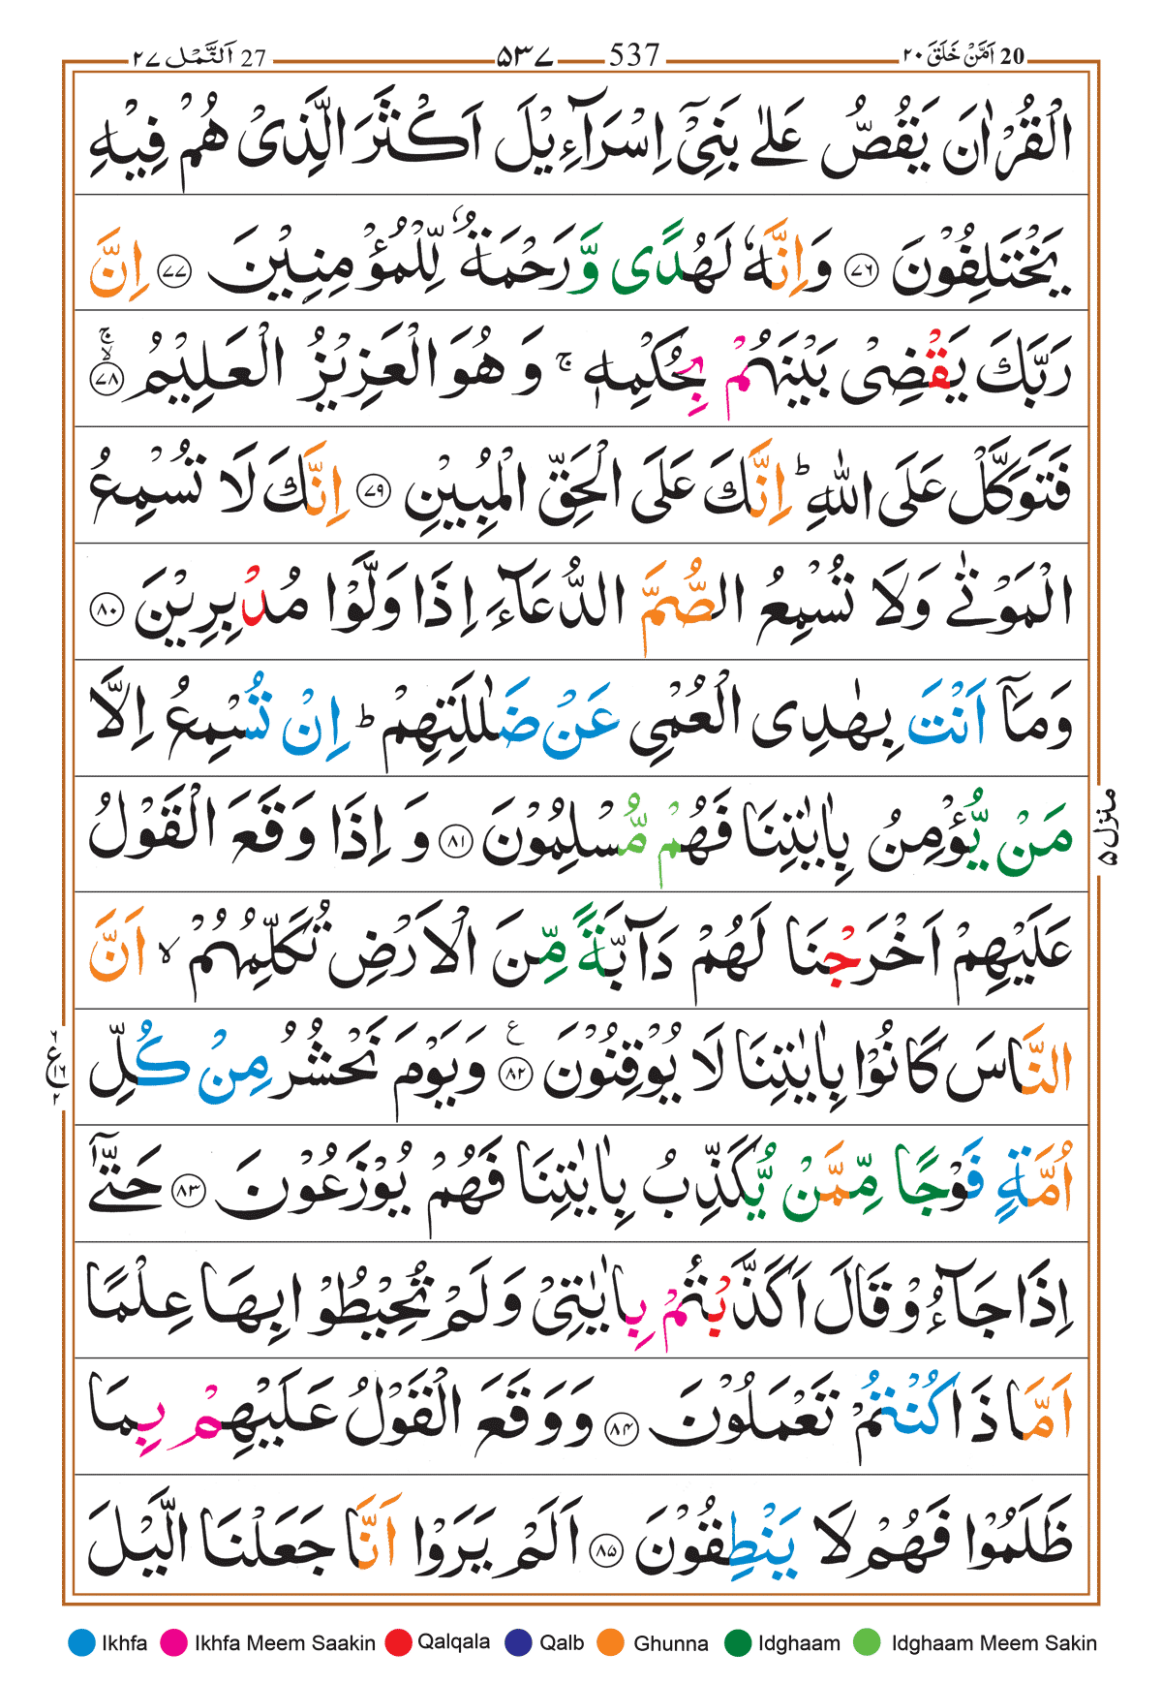 اَلنَّمْل ٢٧ 27 ۵۳۷ 537 اَمَّنْ خَلَقَ ٢٠ 20
الْقُرْاٰنَ يَقُصُّ عَلٰى بَنِيْۤ اِسْرَآءِيْلَ اَكْثَرَ الَّذِىْ هُمْ فِيْهِ
يَخْتَلِفُوْنَ ﴿۷۶﴾ وَاِنَّهٗ لَهُدًى وَّرَحْمَةٌ لِّلْمُؤْمِنِيْنَ ﴿۷۷﴾ اِنَّ
رَبَّكَ يَقْضِىْ بَيْنَهُمْ بِحُكْمِهٖ ۚ وَهُوَ الْعَزِيْزُ الْعَلِيْمُ ﴿۷۸﴾ ۙۚ
فَتَوَكَّلْ عَلَى اللّٰهِ ؕ اِنَّكَ عَلَى الْحَقِّ الْمُبِيْنِ ﴿۷۹﴾ اِنَّكَ لَا تُسْمِعُ
الْمَوْتٰى وَلَا تُسْمِعُ الصُّمَّ الدُّعَآءَ اِذَا وَلَّوْا مُدْبِرِيْنَ ﴿۸۰﴾
وَمَاۤ اَنْتَ بِهٰدِى الْعُمْىِ عَنْ ضَلٰلَتِهِمْ ؕ اِنْ تُسْمِعُ اِلَّا
مَنْ يُّؤْمِنُ بِاٰيٰتِنَا فَهُمْ مُّسْلِمُوْنَ ﴿۸۱﴾ وَاِذَا وَقَعَ الْقَوْلُ
عَلَيْهِمْ اَخْرَجْنَا لَهُمْ دَآبَّةً مِّنَ الْاَرْضِ تُكَلِّمُهُمْ ۙ اَنَّ
النَّاسَ كَانُوْا بِاٰيٰتِنَا لَا يُوْقِنُوْنَ ﴿۸۲﴾ ع وَيَوْمَ نَحْشُرُ مِنْ كُلِّ
اُمَّةٍ فَوْجًا مِّمَّنْ يُّكَذِّبُ بِاٰيٰتِنَا فَهُمْ يُوْزَعُوْنَ ﴿۸۳﴾ حَتّٰۤى
اِذَا جَآءُوْ قَالَ اَكَذَّبْتُمْ بِاٰيٰتِىْ وَلَمْ تُحِيْطُوْا بِهَا عِلْمًا
اَمَّا ذَا كُنْتُمْ تَعْمَلُوْنَ ﴿۸۴﴾ وَوَقَعَ الْقَوْلُ عَلَيْهِمْ بِمَا
ظَلَمُوْا فَهُمْ لَا يَنْطِقُوْنَ ﴿۸۵﴾ اَلَمْ يَرَوْا اَنَّا جَعَلْنَا الَّيْلَ
منزل ۵
ع ۱۶ ۲
Ikhfa Ikhfa Meem Saakin Qalqala Qalb Ghunna Idghaam Idghaam Meem Sakin